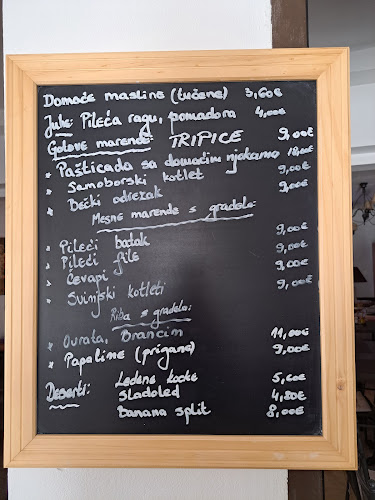 Domaće masline (tučene) 3,60€
Juhe: Pileća ragu, pomadora 4,00€
Gotove marende: TRIPICE 9,00€
* Pašticada sa domaćim njokama 18,00€
* Samoborski kotlet 9,00€
* Bečki odrezak 9,00€
Mesne marende s gradela:
* Pileći batak 9,00€
* Pileći file 9,00€
* Ćevapi 9,00€
* Svinjski kotleti 9,00€
Riba s gradela:
* Ovrata, Brancin 11,00€
* Papaline (prigane) 9,00€
Deserti: Ledene kocke 5,60€
Sladoled 4,80€
Banana split 8,00€